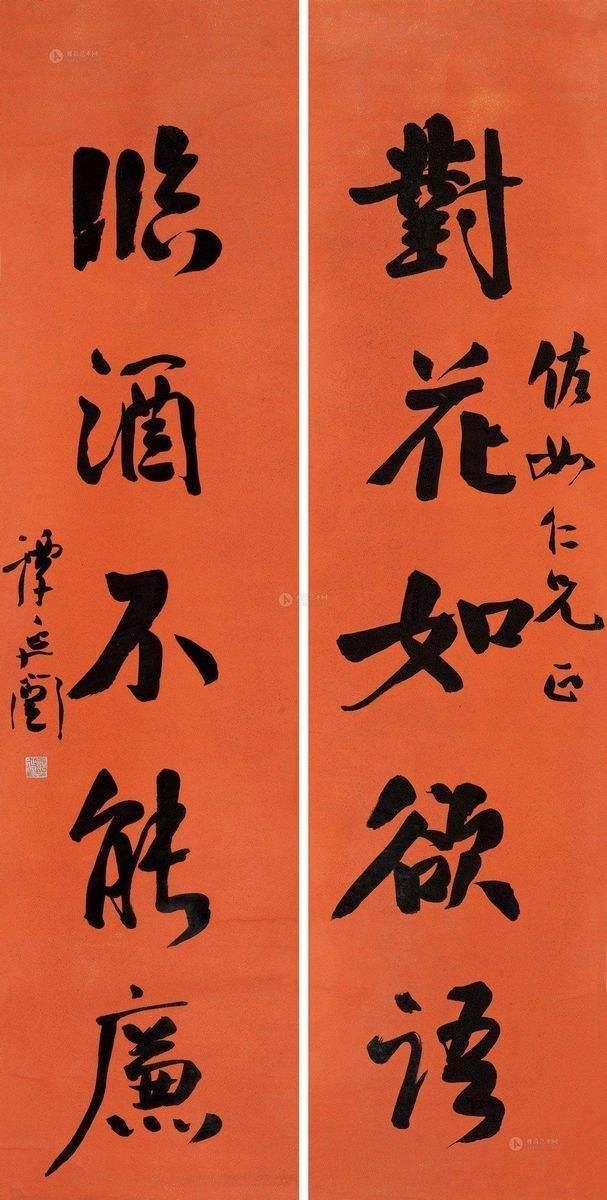 佐如仁兄正
對花如欲語
臨酒不能廉
譚延闓